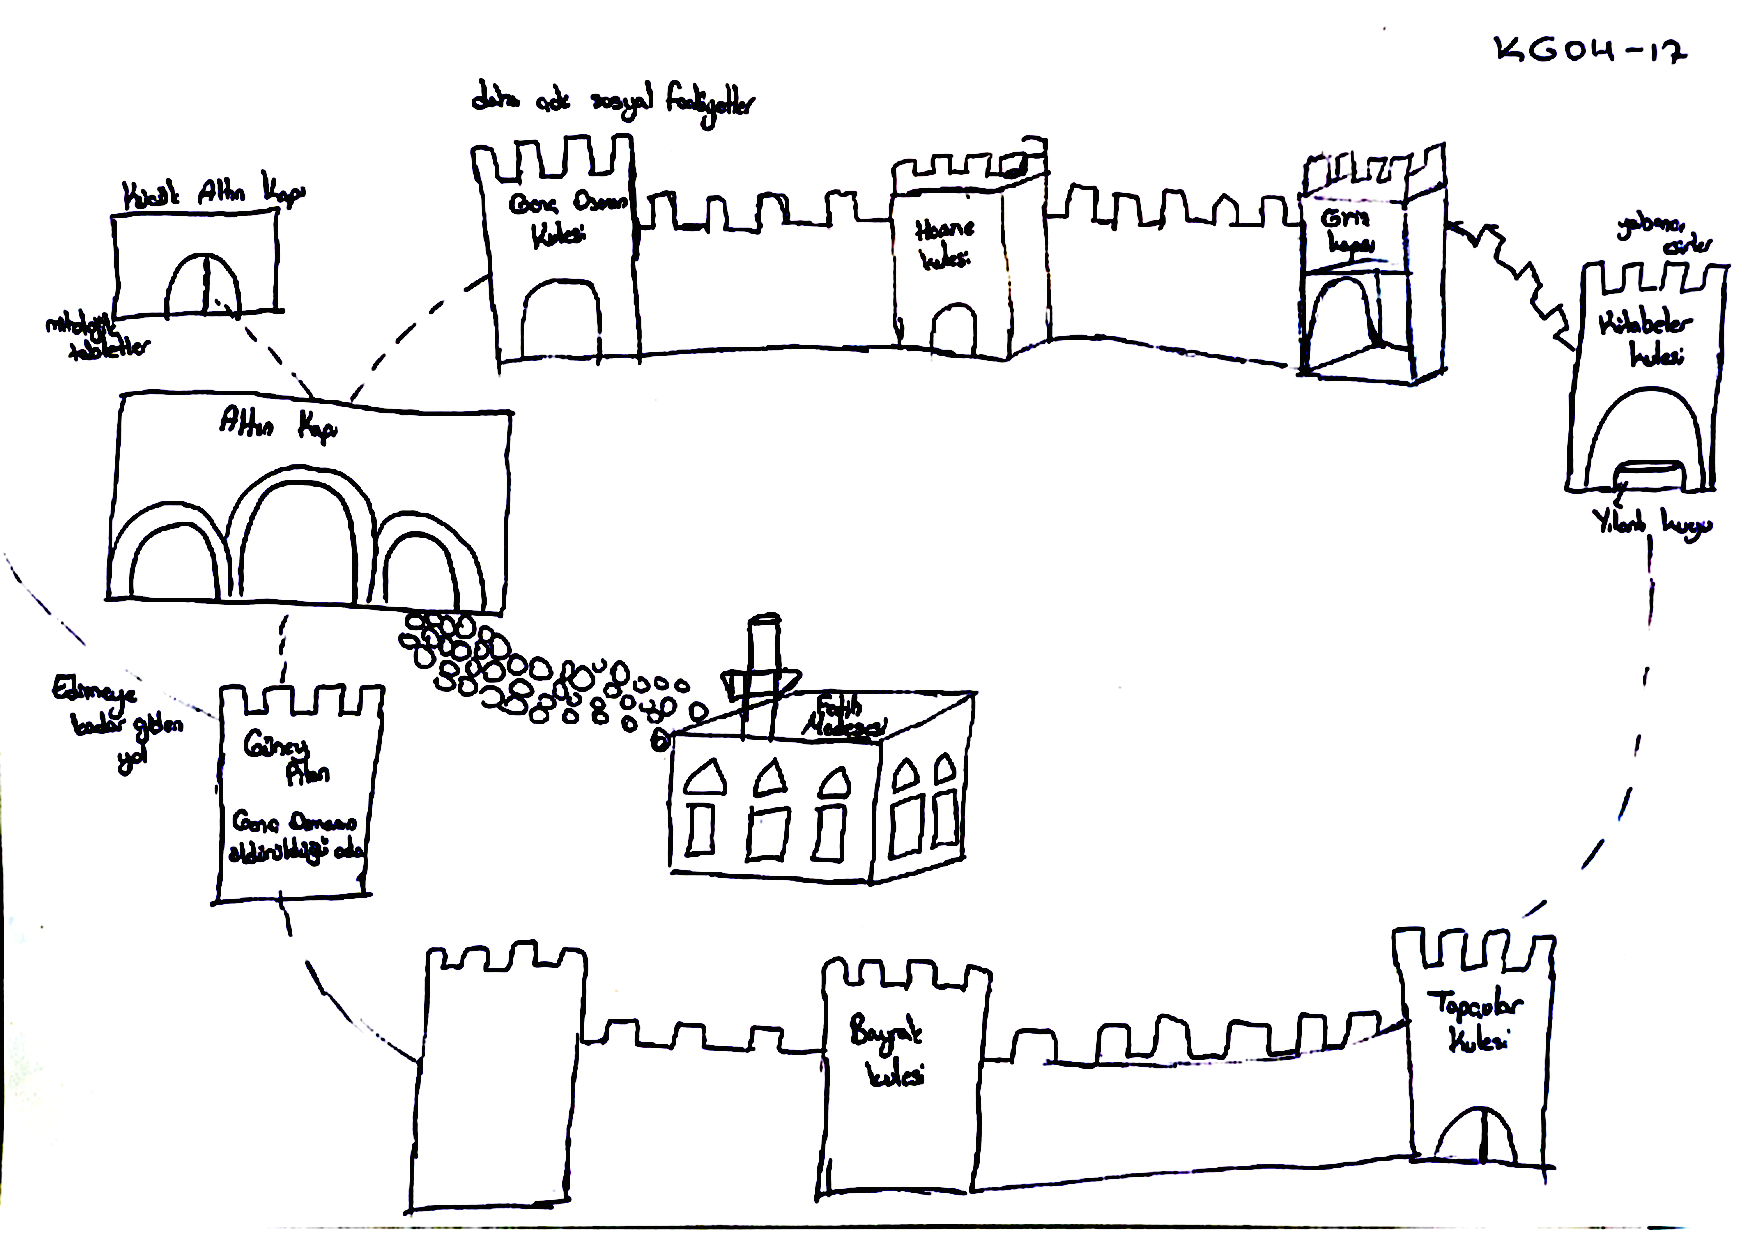 KG04-17
daha çok sosyal faaliyetler
Küçük Altın Kapı
Genç Osman
Kulesi
Hazine
kulesi
Giriş
kapısı
yabancı
esirler
Kitabeler
kulesi
mitolojik
tabletler
Altın Kapı
Yılanlı kuyu
Edirneye
kadar giden
yol
Güney
Pilon
Genç Osmanın
öldürüldüğü oda
Fatih
Medresesi
Bayrak
kulesi
Topçular
Kulesi